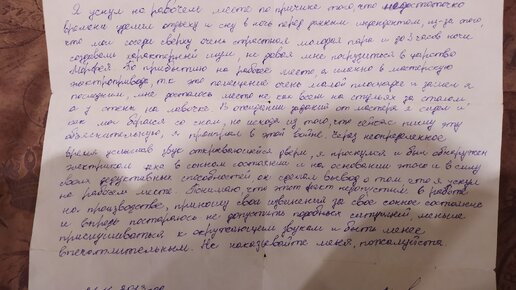 Я уснул на рабочем месте по причине того, что недостаточно
времени уделил отдыху и сну в ночь перед данным инцидентом, из-за того,
что мои соседи сверху очень страстная молодая пара и до 3 часов ночи
создавали характерный шум, не давая мне погрузиться в царство
Морфея. По прибытию на рабочее место, а именно в мастерскую
электропривода, т.к. это помещение очень малой площади и зашел я
последним, мне досталось место не как всем на стульях за столом,
а у стены на лавочке. В ожидании заданий от мастера я сидел и
как мог боролся со сном, но исходя из того, что сейчас пишу эту
объяснительную, я проиграл в этой войне. Через неопределенное
время услышав звук открывающейся двери, я проснулся и был обнаружен
электриком цеха в сонном состоянии и на основании этого и в силу
своих дедуктивных способностей он сделал вывод о том что я уснул
на рабочем месте. Понимаю, что этот факт недопустим в работе
на производстве, приношу свои извинения за свое сонное состояние
и впредь постараюсь не допустить подобных ситуаций, меньше
прислушиваться к окружающим звукам и быть менее
впечатлительным. Не наказывайте меня, пожалуйста